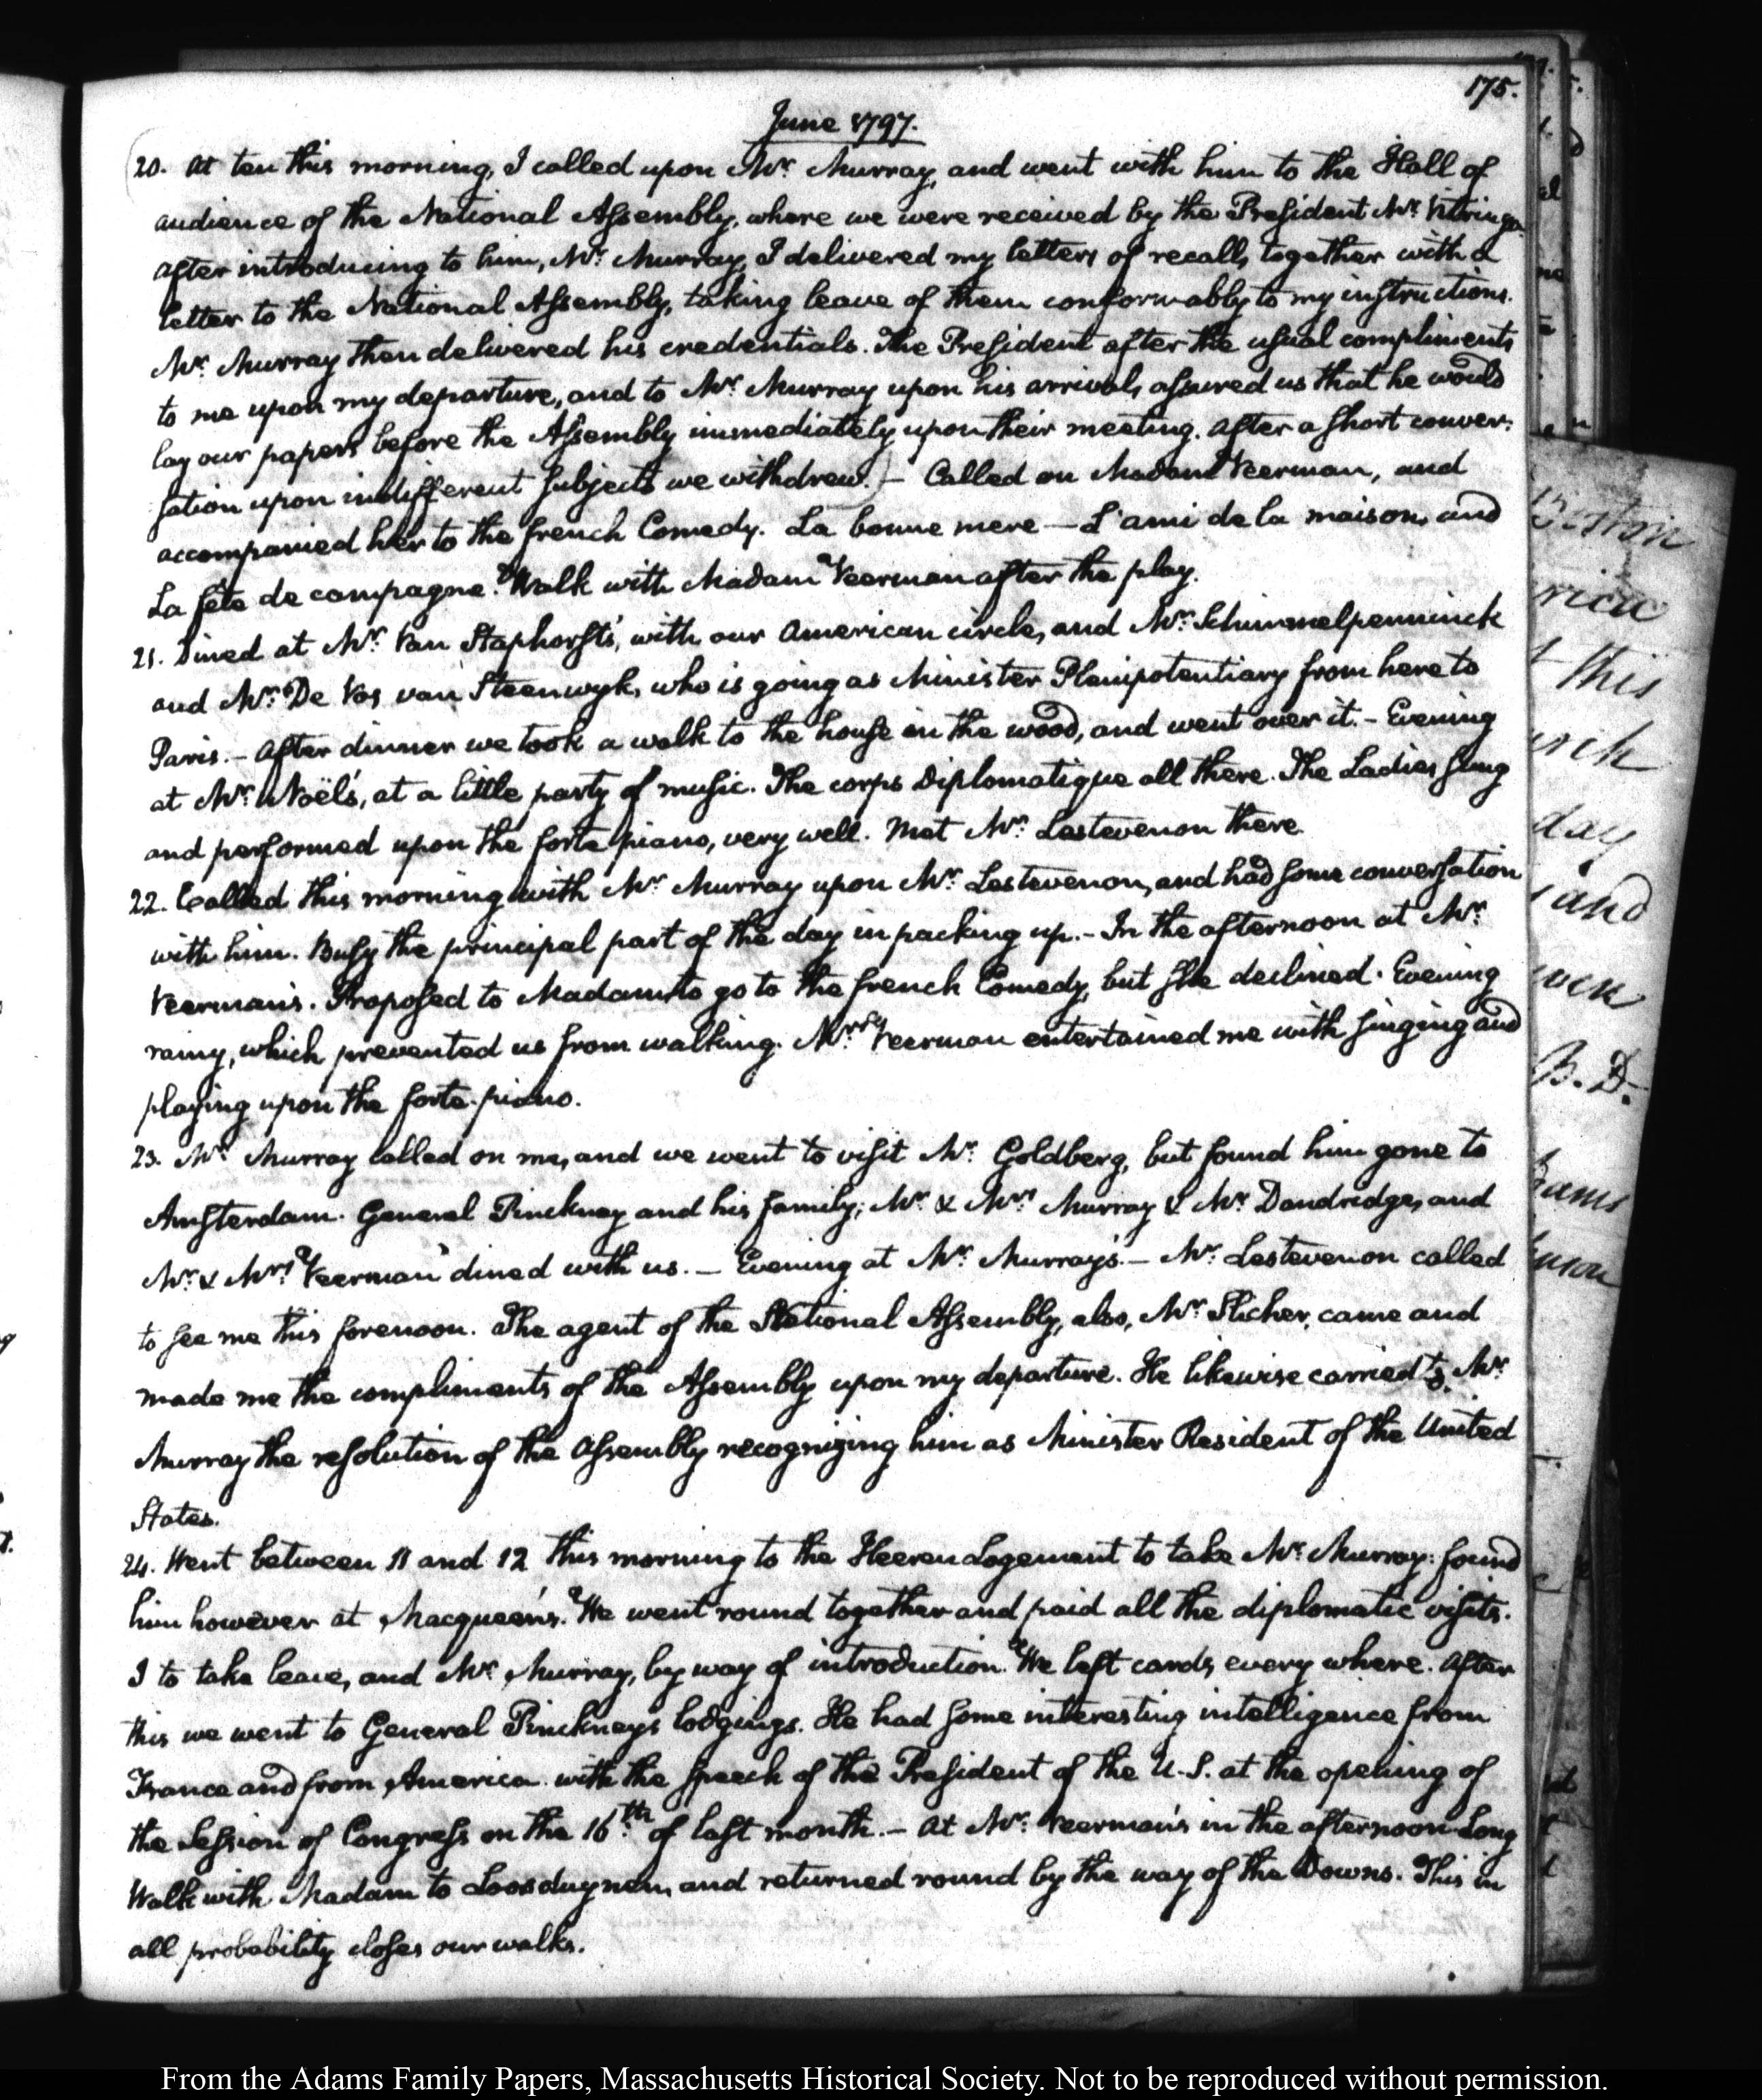 175.
June 1797.
20. At ten this morning, I called upon Mr. Murray, and went with him to the Hall of
audience of the National Assembly, where we were received by the President Mr. Vitringa.
After introducing to him, Mr. Murray, I delivered my letters of recall, together with a
letter to the National Assembly, taking leave of them conformably to my instructions.
Mr. Murray then delivered his credentials. The President after the usual compliments
to me upon my departure, and to Mr. Murray upon his arrival, assured us that he would
lay our papers before the Assembly immediately upon their meeting. After a short conver-
sation upon indifferent subjects we withdrew.) — Called on Madam Veerman, and
accompanied her to the french Comedy. La bonne mere — L'ami de la maison, and
La fête de campagne. Walk with Madam Veerman after the play.
21. Dined at Mr. Van Staphorst's, with our American circle, and Mr. Schimmelpenninck
and Mr. De Vos van Steenwyk, who is going as Minister Plenipotentiary from here to
Paris. — After dinner we took a walk to the house in the wood, and went over it. — Evening
at Mr. Noël's, at a little party of music. The corps Diplomatique all there. The Ladies sung
and performed upon the forte piano, very well. Met Mr. Lestevenon there.
22. Called this morning with Mr. Murray upon Mr. Lestevenon, and had some conversation
with him. Busy the principal part of the day in packing up. — In the afternoon at Mr.
Veerman's. Proposed to Madam to go to the french Comedy, but she declined. Evening
rainy, which prevented us from walking. Mrs. Veerman entertained me with singing and
playing upon the forte-piano.
23. Mr. Murray called on me, and we went to visit Mr. Goldberg, but found him gone to
Amsterdam. General Pinckney and his family; Mr. & Mrs. Murray & Mr. Dandridge, and
Mr. & Mrs. Veerman dined with us. — Evening at Mr. Murray's. — Mr. Lestevenon called
to see me this forenoon. The agent of the National Assembly, also, Mr. Slicher, came and
made me the compliments of the Assembly upon my departure. He likewise carried to Mr.
Murray the resolution of the Assembly recognizing him as Minister Resident of the United
States.
24. Went between 11 and 12 this morning to the Heeren Logement to take Mr. Murray: found
him however at Macqueen's. We went round together and paid all the diplomatic visits.
I to take leave, and Mr. Murray, by way of introduction. We left cards every where. After
this we went to General Pinckney's lodgings. He had some interesting intelligence from
France and from America with the speech of the President of the U.S. at the opening of
the Session of Congress on the 16th. of last month. — At Mr. Veerman's in the afternoon. Long
Walk with Madam to Loosduynen, and returned round by the way of the Downs. This in
all probability closes our walks.
this
day
and
B. D.
From the Adams Family Papers, Massachusetts Historical Society. Not to be reproduced without permission.